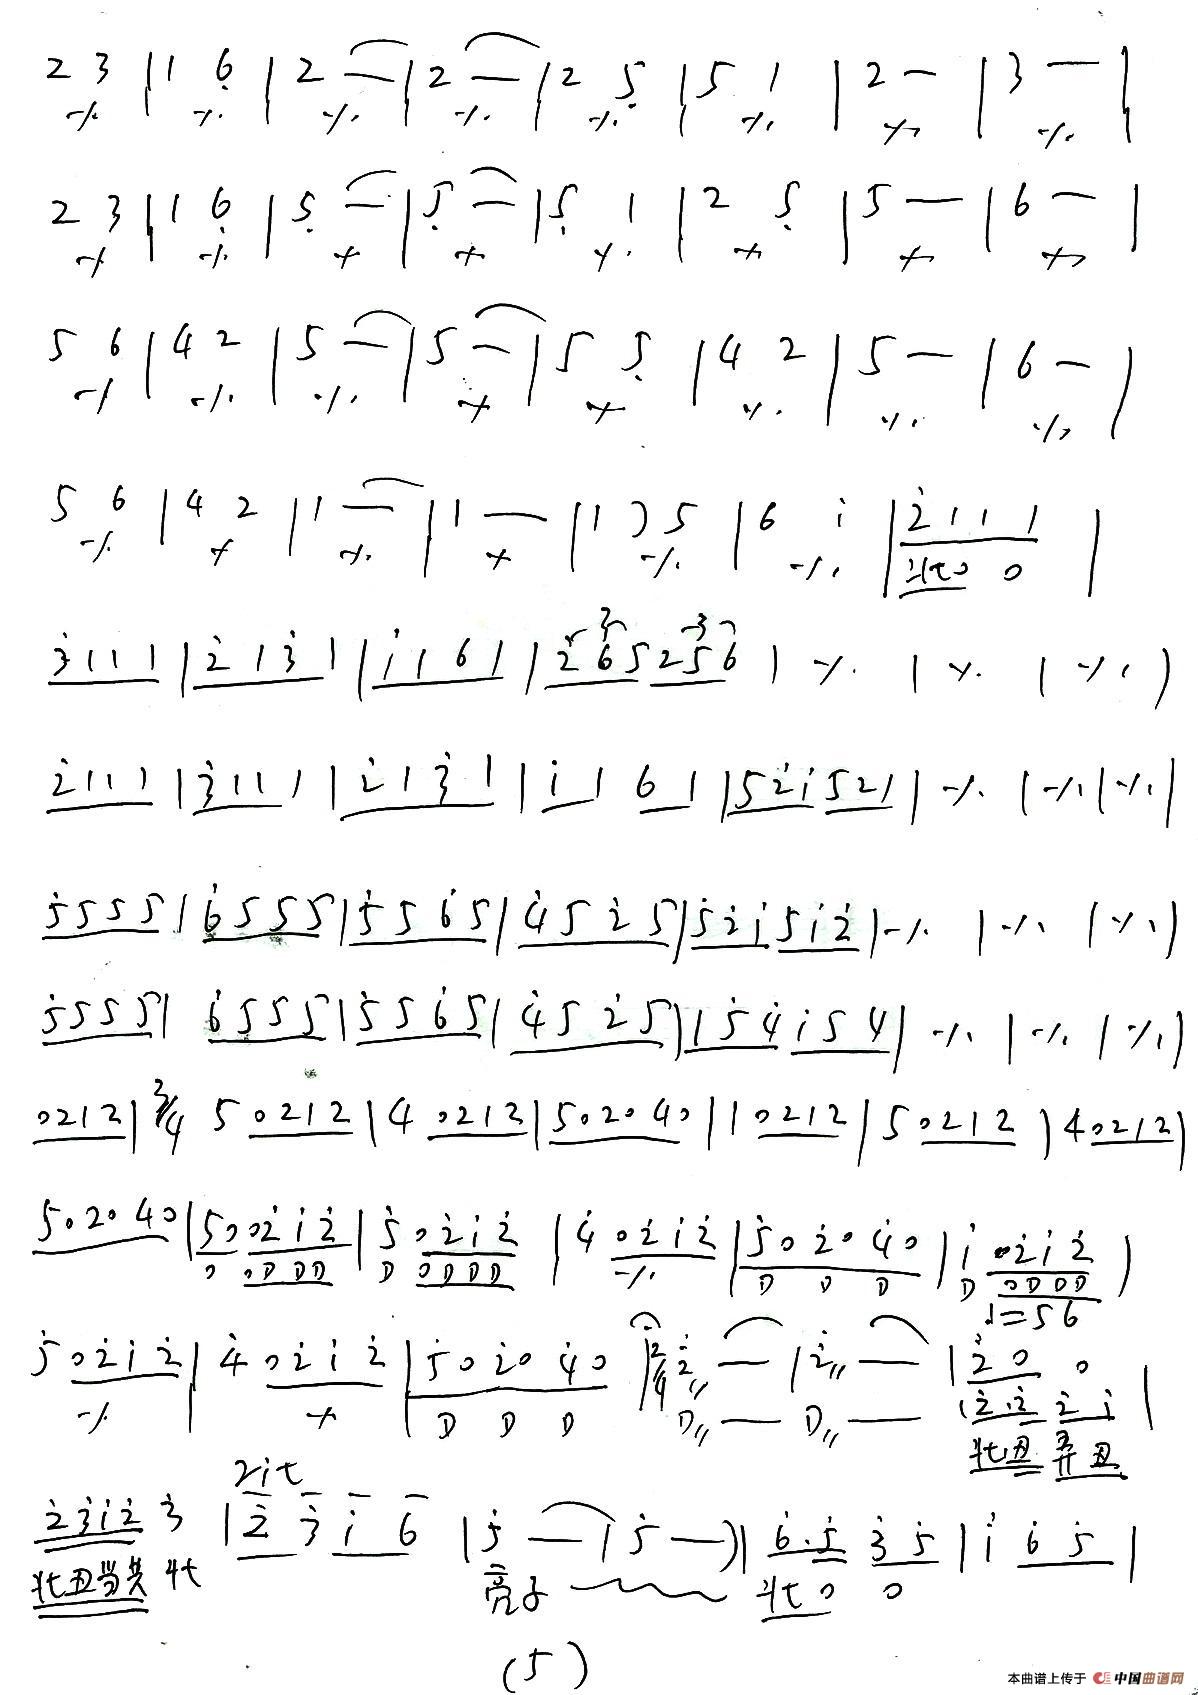 2 3 | 1 6̣ | 2 — | 2 — | 2 5̣ | 5 1 | 2 — | 3 — |
٪ ٪ ٪ ٪ ٪ ٪ ٪ ٪
2 3 | 1 6̣ | 5̣ — | 5̣ — | 5̣ 1 | 2 5̣ | 5 — | 6 — |
٪ ٪ ٪ ٪ ٪ ٪ ٪ ٪
5 6 | 4 2 | 5 — | 5 — | 5 5̣ | 4 2 | 5 — | 6 — |
٪ ٪ ٪ ٪ ٪ ٪ ٪ ٪
5 6 | 4 2 | 1 — | 1 — | 1 ) 5 | 6 i | 2̇ 1 1 1 |
٪ ٪ ٪ ٪ ٪ ٪ 壮 0 0
3̇ 1 1 1 | 2̇ 1 3̇ 1 | i 1 6 1 | 2̇ 6 5 2 5 6 | ٪ | ٪ | ٪ |
3 3
2̇ 1 1 1 | 3̇ 1 1 1 | 2̇ 1 3̇ 1 | i 1 6 1 | 5 2̇ i 5 2 1 | ٪ | ٪ | ٪ |
5̇ 5 5 5 | 6̇ 5 5 5 | 5̇ 5 6̇ 5 | 4̇ 5 2̇ 5 | 5̇ 2̇ i 5 i 2̇ | ٪ | ٪ | ٪ |
5̇ 5 5 5 | 6̇ 5 5 5 | 5̇ 5 6̇ 5 | 4̇ 5 2̇ 5 | i 5 4̇ i 5 4 | ٪ | ٪ | ٪ |
0 2 1 2 | 3/4 5 0 2 1 2 | 4 0 2 1 2 | 5 0 2 0 4 0 | 1 0 2 1 2 | 5 0 2 1 2 | 4 0 2 1 2 |
5 0 2 0 4 0 | 5 0 0 2̇ i 2̇ | 5̇ 0 2̇ i 2̇ | 4̇ 0 2̇ i 2̇ | 5̇ 0 2̇ 0 4̇ 0 | i 0 2̇ i 2̇ |
0 0 D D D D 0 D D D ٪ D D D D 0 D D D
♩=56
5̇ 0 2̇ i 2̇ | 4̇ 0 2̇ i 2̇ | 5̇ 0 2̇ 0 4̇ 0 | 2/4 2̇ — | 2̇ — | 2̇ 0 0 |
٪ ٪ D D D D — D — ( 2̇. 2̇ 2̇ i
壮丑 弄丑
rit
2̇ 3̇ i 2̇ 3̇ | 2̇ 3̇ i 6 | 5̇ — | 5̇ — ) | 6̇. 5̇ 3̇ 5̇ | i 6̇ 5̇ |
壮丑当关 壮 亮子 壮 0 0
(5)
本曲谱上传于 中国曲谱网